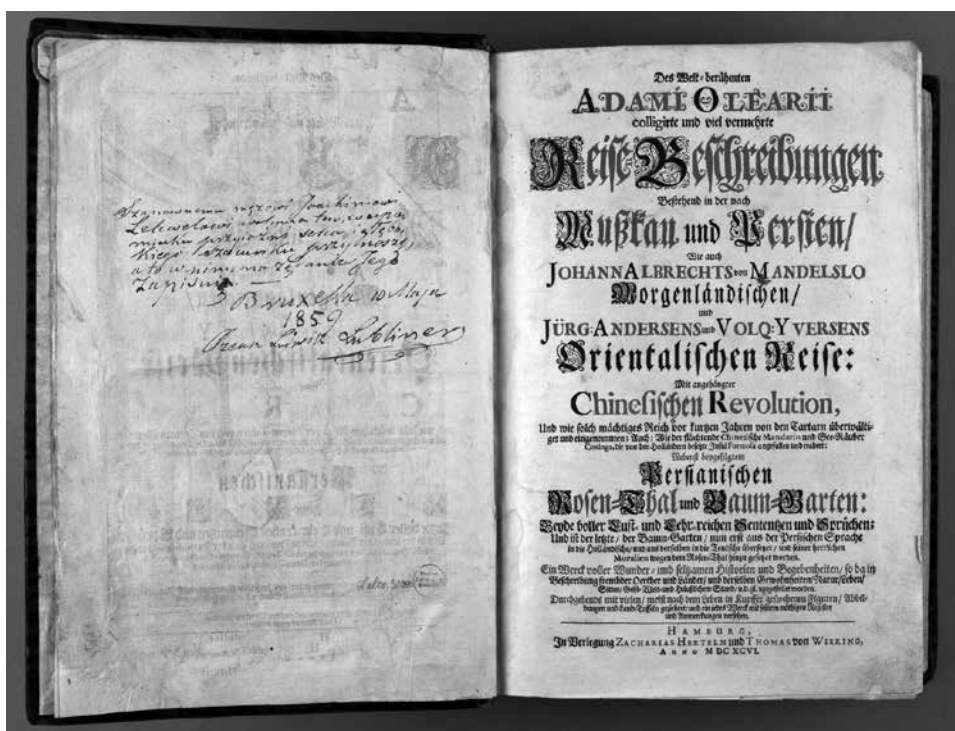 Szanownemu mężowi Joachimowi
Lelewelowi
miątki przyjaźni
kiego szacunku przynoszę,
a to w imie na żądanie Jego
Zapisuię. —
Bruxella 10 Maja
1859
Ozeasz Ludwik Lubliner
Des Welt-berühmten
ADAMI OLEARII
colligirte und viel vermehrte
Reise-Beschreibungen
Bestehend in der nach
Mußkau und Persien/
Wie auch
JOHANN ALBRECHTS von MANDELSLO
Morgenländischen/
und
JÜRG: ANDERSENS und VOLQ: YVERSENS
Orientalischen Reise:
Mit angehängter
Chinesischen Revolution,
Und wie solch mächtiges Reich vor kurtzen Jahren von den Tartarn überwälti-
get und eingenommen; Auch: Wie der flüchtende Chinesische Mandarin und See-Räuber
Coxinga, die von den Holländern besetzte Insul Formosa angefallen und erobert:
Nebenst beygefügtem
Persianischen
Rosen-Thal und Baum-Garten:
Beyde voller Lust- und Lehr-reichen Sententzen und Sprüchen:
Und ist der letzte/ der Baum-Garten/ nun erst aus der Persischen Sprache
in die Holländische/ und aus derselben in die Teutsche übersetzet/ und seiner herrlichen
Moralien wegen dem Rosen-Thal hinzu gesetzet worden.
Ein Werck voller Wunder- und seltzamen Historien und Begebenheiten/ so da in
Beschreibung frembder Oerther und Länder/ und derselben Gewohnheiten/ Natur/ Leben/
Sitten/ Geist- Welt- und Häußlichem Stand/ u.d.gl. vorgestellet worden.
Durchgehends mit vielen/ meist nach dem Leben in Kupffer gestochenen Figuren/ Abbil-
dungen und Land-Taffeln gezieret; und ein jedes Werck mit seinem nöthigen Register
und Anmerckungen versehen.
HAMBURG,
In Verlegung ZACHARIAS HERTELN und THOMAS von WIERING,
ANNO MDCXCVI.